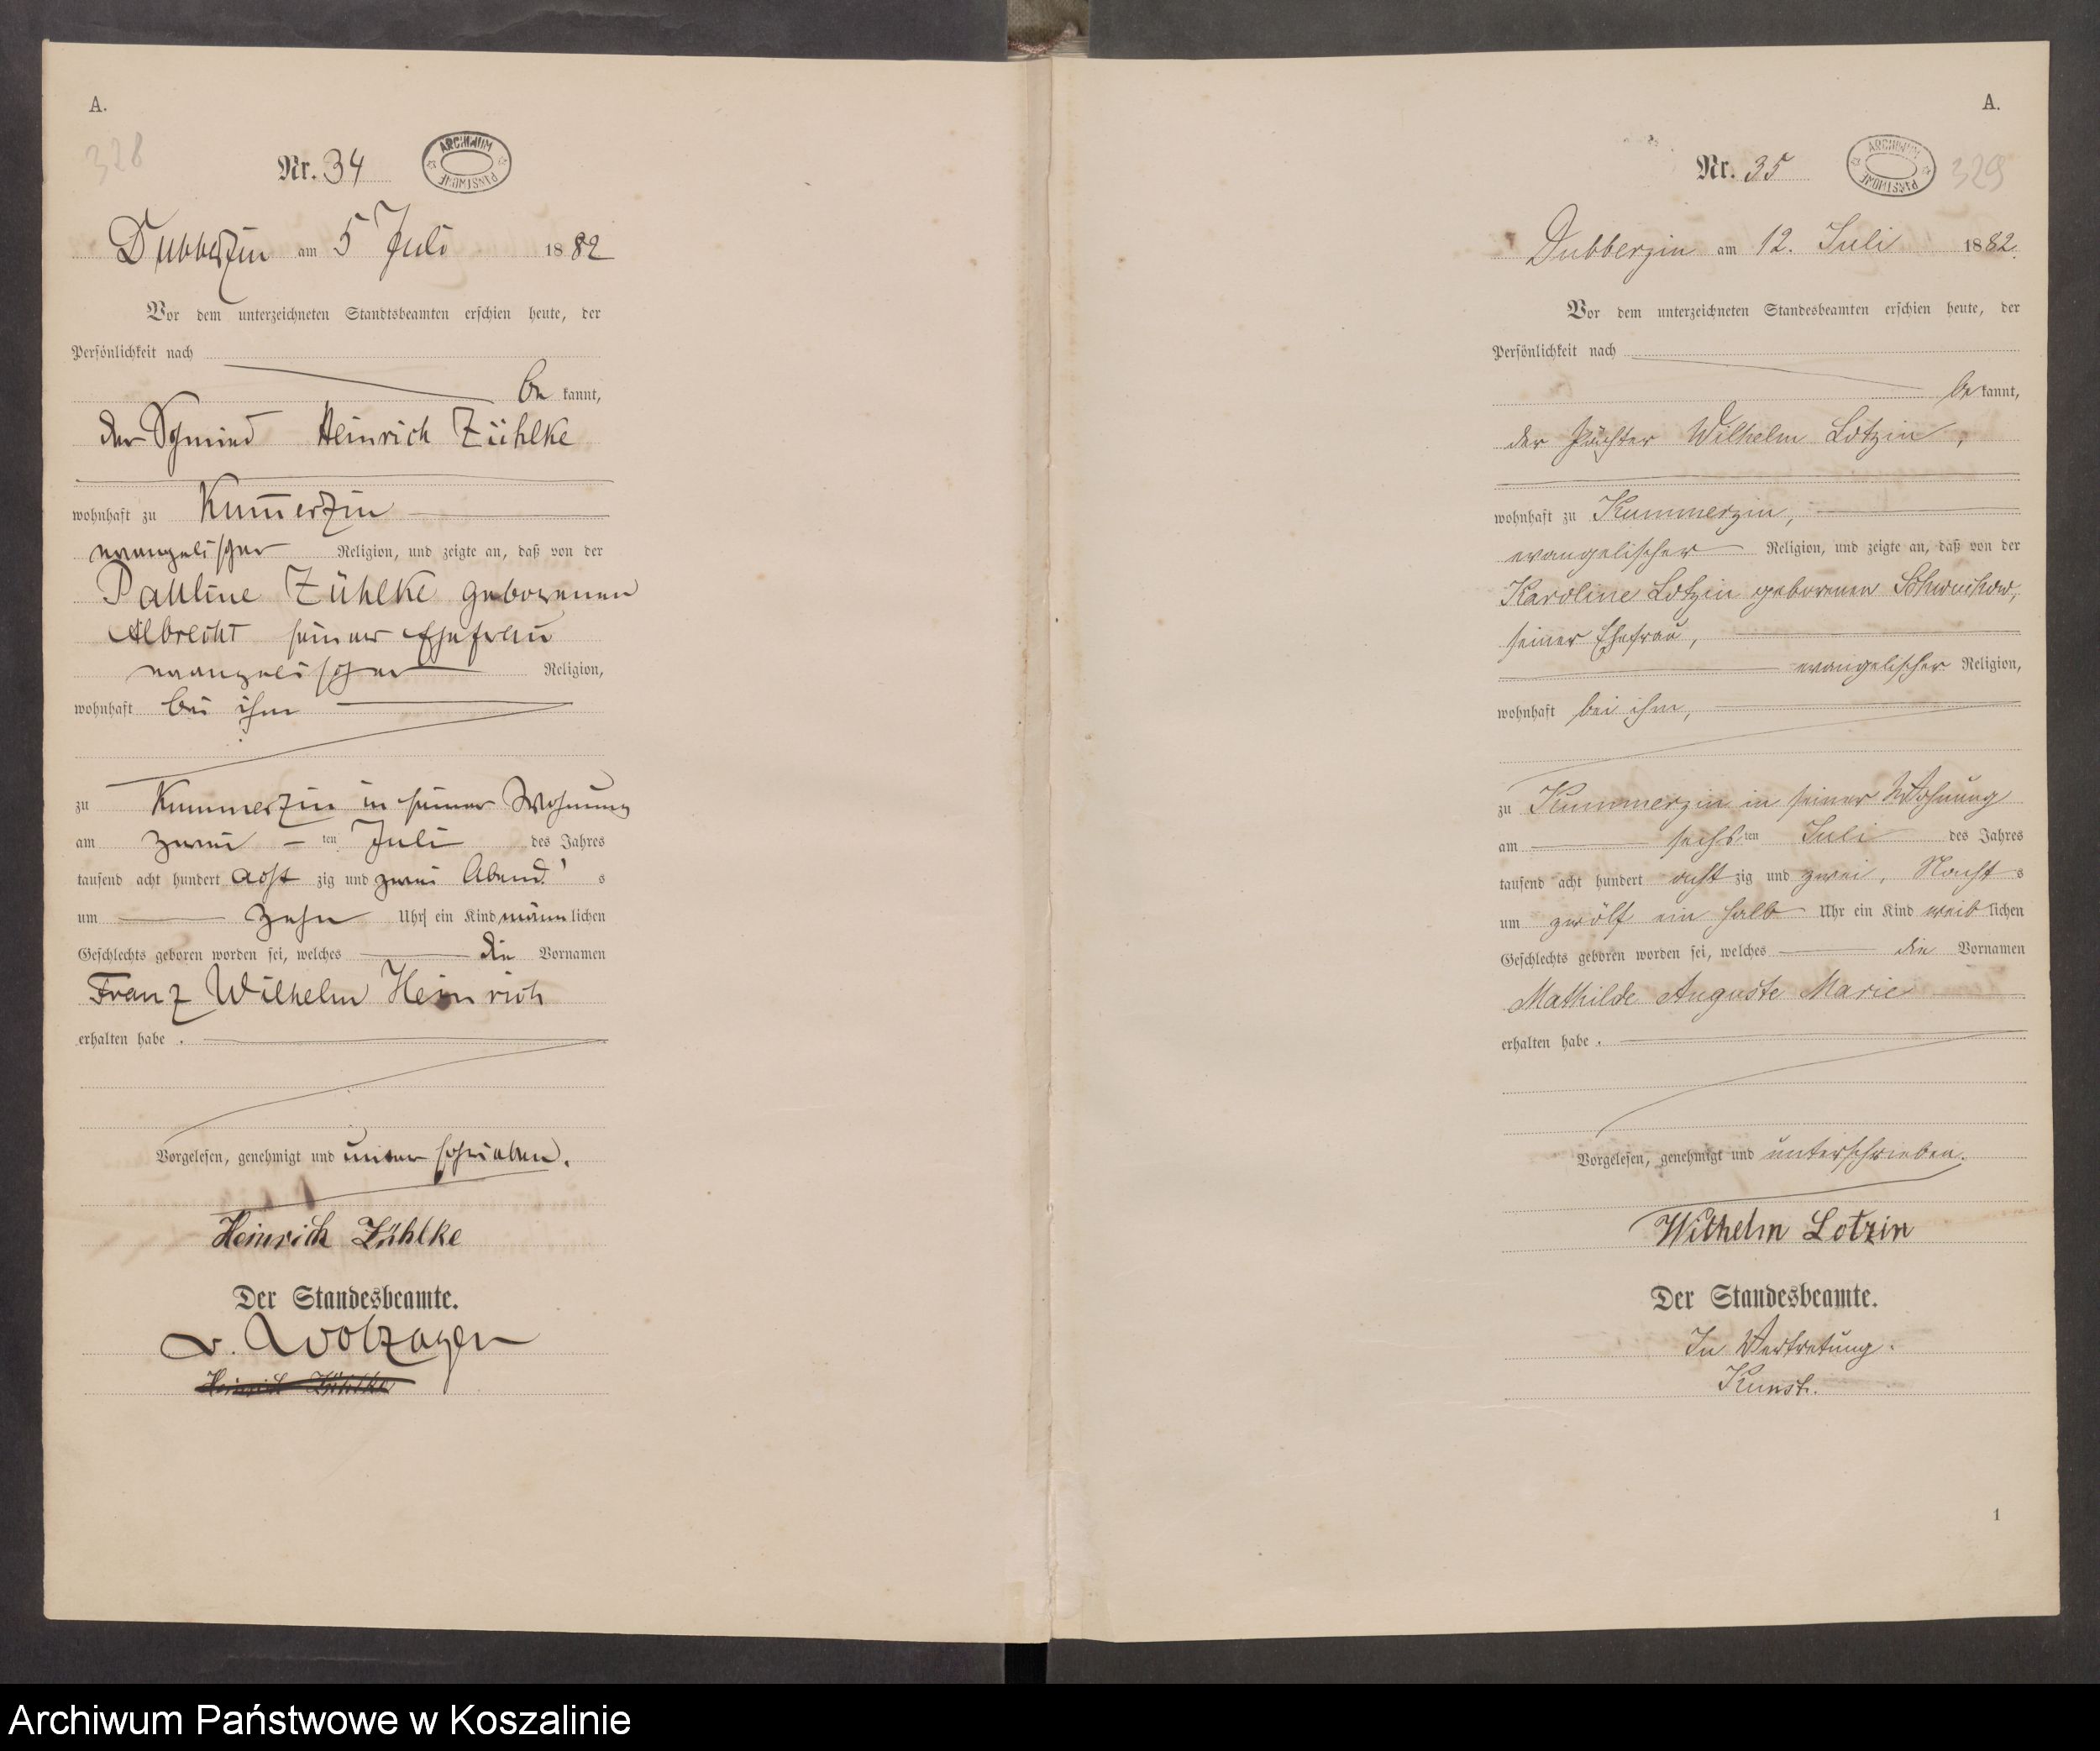 A.
328
Nr. 34
ARCHIWUM PAŃSTWOWE
Dubberzin am 5 Juli 1882
Vor dem unterzeichneten Standtsbeamten erschien heute, der
Persönlichkeit nach
be kannt,
der Schmied Heinrich Zühlke
wohnhaft zu Kum̅erzin
evangelischer Religion, und zeigte an, daß von der
Pauline Zühlke geborenen
Albrecht seiner Ehefrau
evangelischer Religion,
wohnhaft bei ihm
zu Kummerzin in seiner Wohnung
am zwei ten Juli des Jahres
tausend acht hundert acht zig und zwei Abend s
um zehn Uhr ein Kind männlichen
Geschlechts geboren worden sei, welches die Vornamen
Franz Wilhelm Heinrich
erhalten habe.
Vorgelesen, genehmigt und unterschrieben.
Heinrich Zühlke
Der Standesbeamte.
v. Wolzogen
Heinrich Zühlke
A.
Nr. 35
ARCHIWUM PAŃSTWOWE
329
Dubberzin am 12. Juli 1882.
Vor dem unterzeichneten Standesbeamten erschien heute, der
Persönlichkeit nach
be kannt,
der Pächter Wilhelm Lotzin,
wohnhaft zu Kummerzin,
evangelischer Religion, und zeigte an, daß von der
Karoline Lotzin geborenen
seiner Ehefrau,
evangelischer Religion,
wohnhaft bei ihm,
zu Kummerzin in seiner Wohnung
am sechs ten Juli des Jahres
tausend acht hundert acht zig und zwei, Nacht s
um zwölf ein halb Uhr ein Kind weib lichen
Geschlechts geboren worden sei, welches die Vornamen
Mathilde Auguste Marie
erhalten habe.
Vorgelesen, genehmigt und unterschrieben.
Wilhelm Lotzin
Der Standesbeamte.
In Vertretung.
Kunst.
1
Archiwum Państwowe w Koszalinie